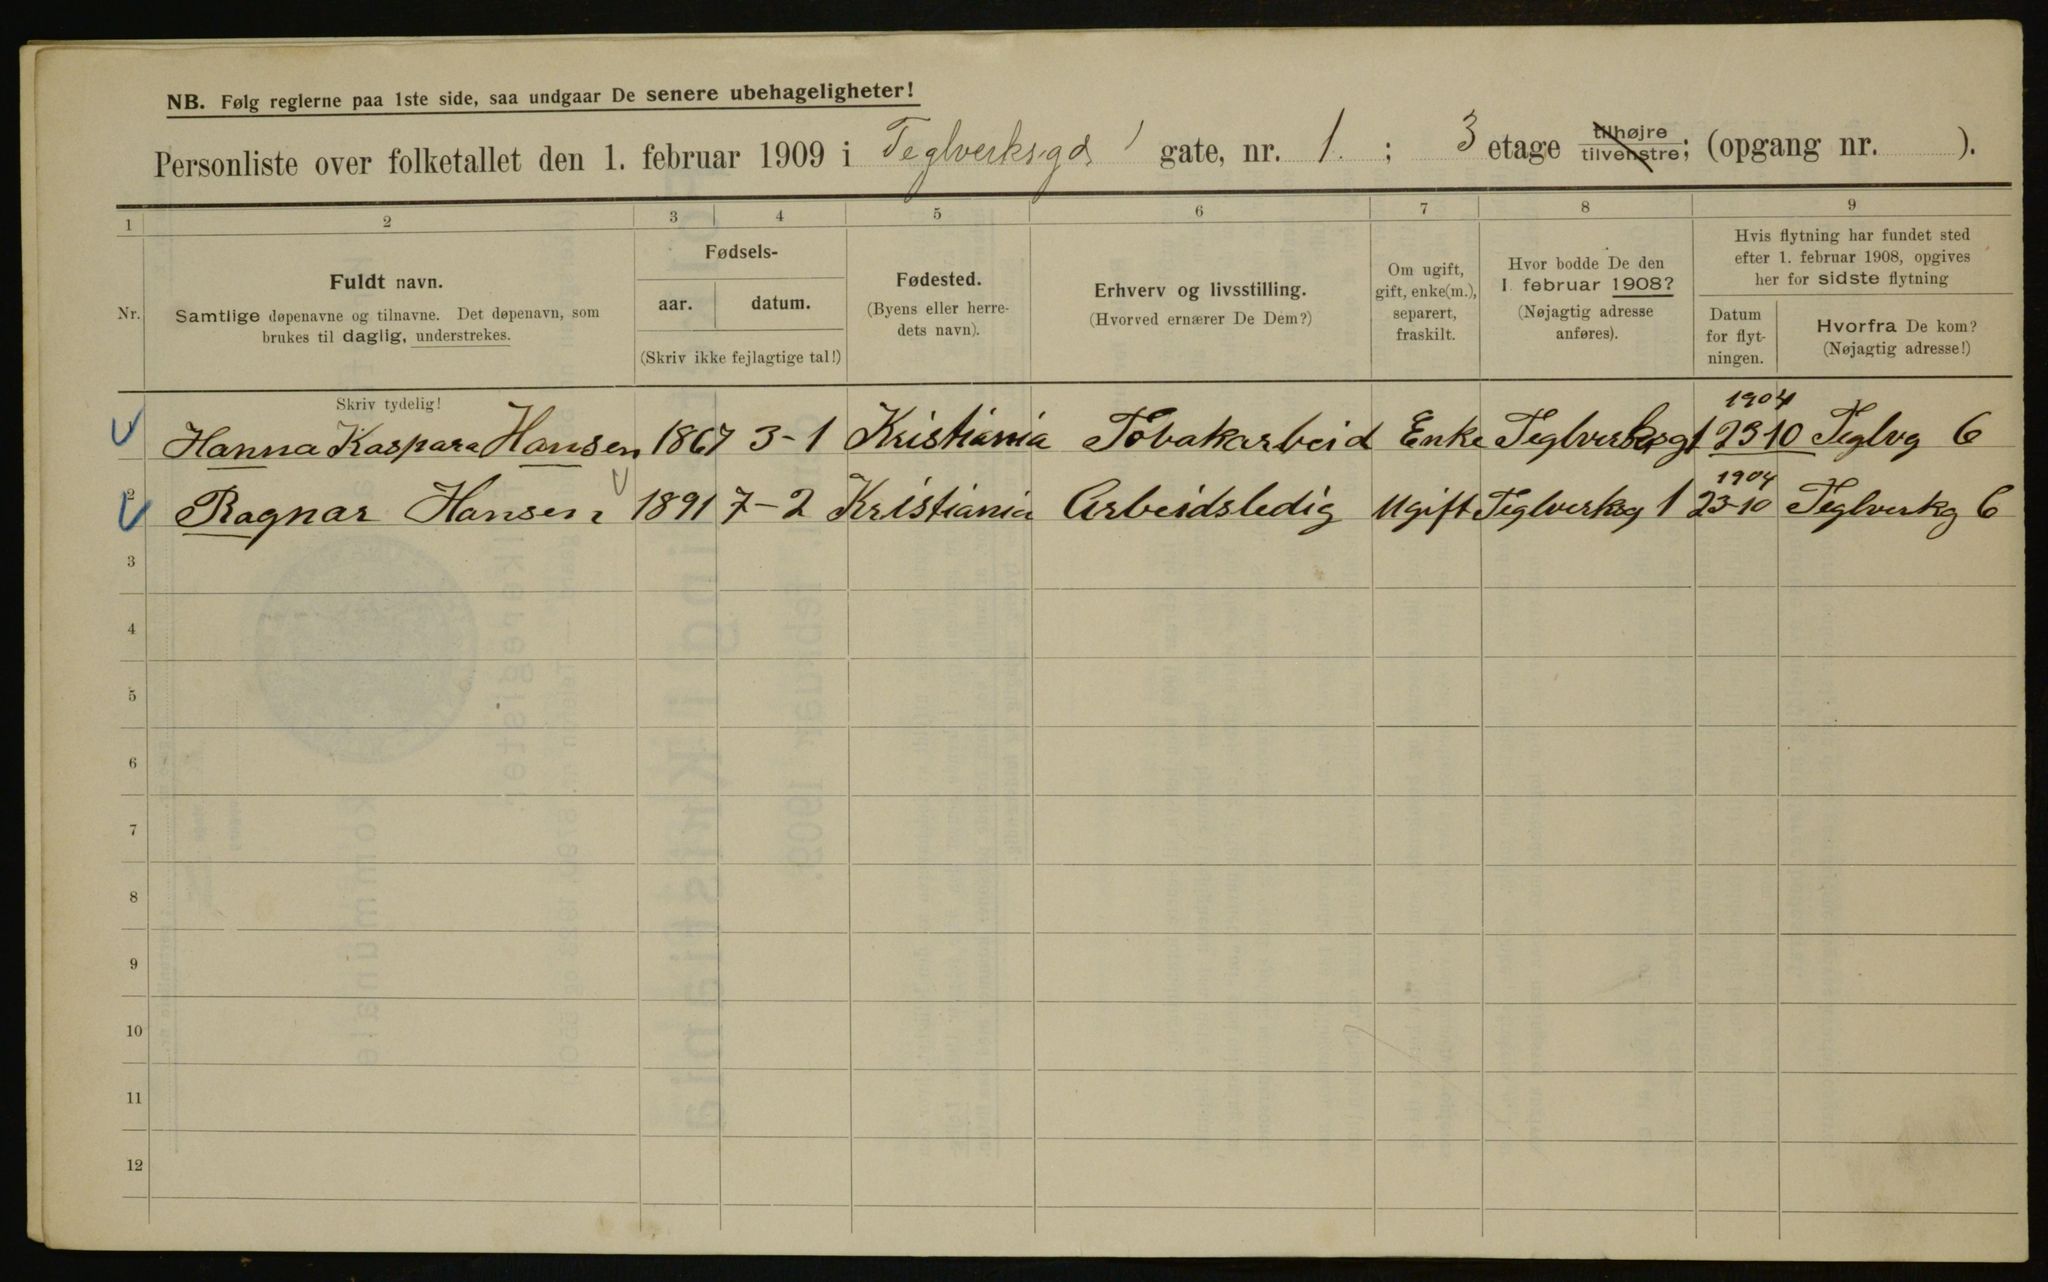 NB. Følg reglerne paa 1ste side, saa undgaar De senere ubehageligheter!
Personliste over folketallet den 1. februar 1909 i Teglverksgd 1 gate, nr. 1. ; 3 etage tilhøjre tilvenstre; (opgang nr. ).
1 2 3 4 5 6 7 8 9
Nr.
Fuldt navn.
Samtlige døpenavne og tilnavne. Det døpenavn, som
brukes til daglig, understrekes.
Fødsels-
aar. datum.
(Skriv ikke fejlagtige tal!)
Fødested.
(Byens eller herre-
dets navn).
Erhverv og livsstilling.
(Hvorved ernærer De Dem?)
Om ugift,
gift, enke(m.),
separert,
fraskilt.
Hvor bodde De den
1. februar 1908?
(Nøjagtig adresse
anføres).
Hvis flytning har fundet sted
efter 1. februar 1908, opgives
her for sidste flytning
Datum
for flyt-
ningen.
Hvorfra De kom?
(Nøjagtig adresse!)
Skriv tydelig!
1904
Hanna Kaspara Hansen 1867 3-1 Kristiania Tobakarbeid Enke 23 10 Teglvg 6
1904
2 Ragnar Hansen 1891 7-2 Kristiania Arbeidsledig Ugift Teglverksg 1 23-10 Teglverkg 6
3
4
5
6
7
8
9
10
11
12